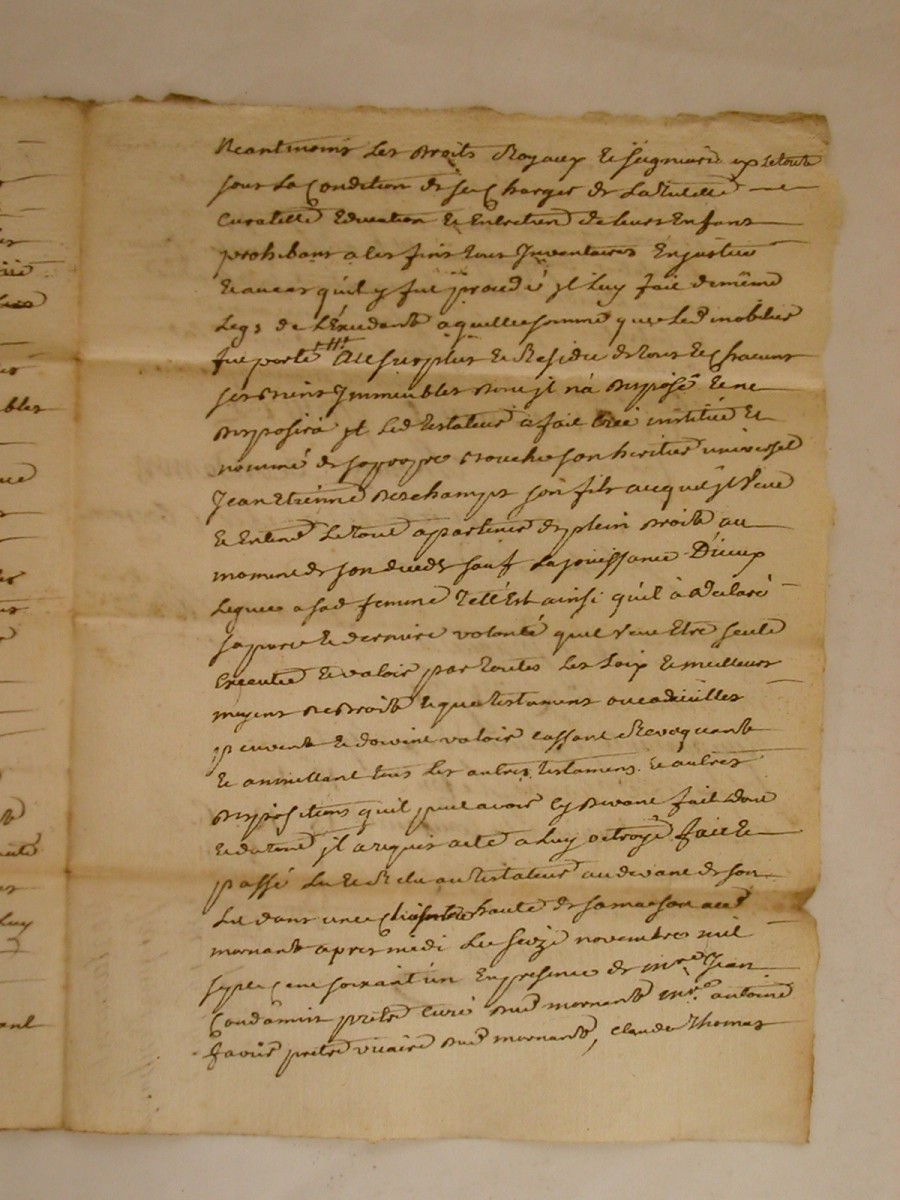 Neantmoins les Droits Royaux et seigneuriaux le toute
sous la Condition de se Charger de la Tutelle
Curatelle Education et Entretien de leurs Enfans
prohibant a ces fins tous Inventaires En justice
et au cas qu'il y fut procedé jl luy fait de même
Legs de L'Excedant a quelle somme que led mobilier
fut porté Au surplus et Residu de tous et Chacuns
ses Biens Immeubles dont jl n'a Disposé et ne
Disposera jl Led Testateur à fait Créé institué et
nommé de sa propre Bouche son heritier universel
Jean Etienne Deschamps son fils auquel jl veut
et Entend Le tout apartenir de plein Droit au
moment de son deceds sauf la jouissance D'iceux
Leguée a sad femme Telle Est ainsi qu'il à Declaré
sa pure et derniere volonté qu'il veut Etre seule
Executée et valoir par toutes les Loix et meilleurs
moyens de Droit que testament ou codicilles
peuvent et doivent valoir cassant Revoquant
et annullant tous les autres testamens et autres
Dispositions qu'il peut avoir Cy Devant fait dont
et du tout jl a requis acte a Luy octroyé fait et
passé Lu et Relu au Testateur au devant de son
Lit dans une Chambre haute de sa maison aud
mornant apres midi Le seize novembre mil
sept Cent soixant un En presence de mre Jean
Condamin pretre Curé dud mornant mre antoine
Favier pretre vicaire dud mornant, Claude Thomas